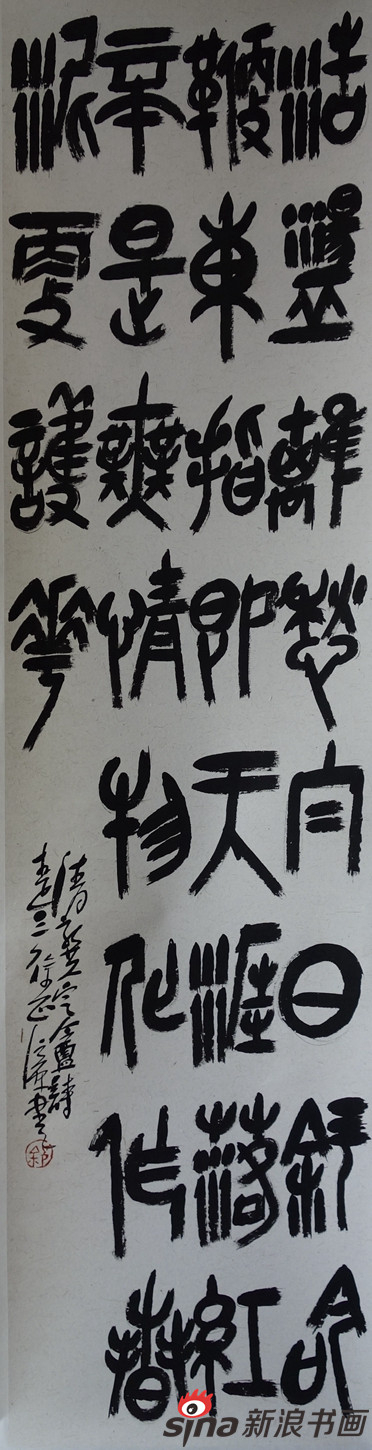 浩盪離愁白日斜吟
鞭東指即天涯落紅
不是無情物化作春
泥更護華
清龔定盦詩
三徐正濂書
徐
sina新浪书画